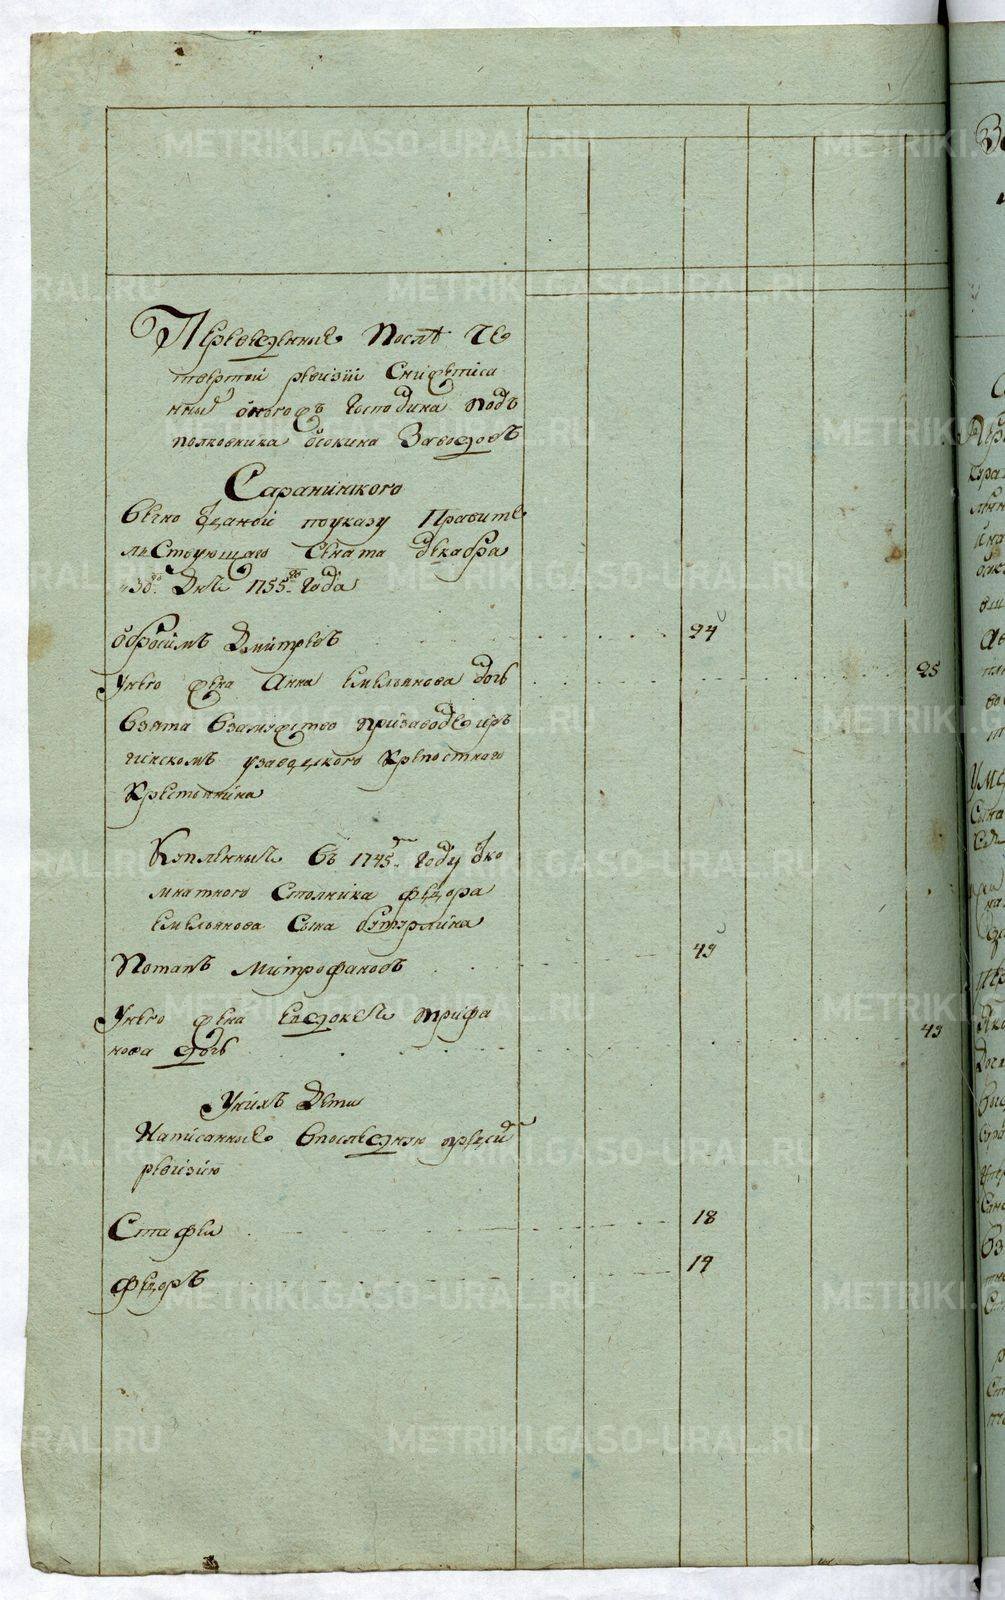 Переведенные После Че
твертой ревизии Снижеписа
нных оного ж Господина Подъ
полковника Осокина Заводовъ
Саранинского
Вечно отданой поуказу Правите
льСтвующаго Сената декабря
30го Дня 1755го Года
Обросимъ Дмитревъ 24
Унего жена Анна Емельянова дочь 25
Взята Взамужство призаводе Ир
гинскомъ узаводского Крепостного
Крестьянина
Купленныя Въ 1745м Году Око
мнатного Столника Федора
Емельянова Сына бутурлина
Потапъ Митрофановъ 43
Унего жена Евдокея Трифа
нова дочь 43
Унихъ Дети
Написанные Впоследнюю предсим
ревизию
Стафеи 18
Федоръ 14
METRIKI.GASO-URAL.RU